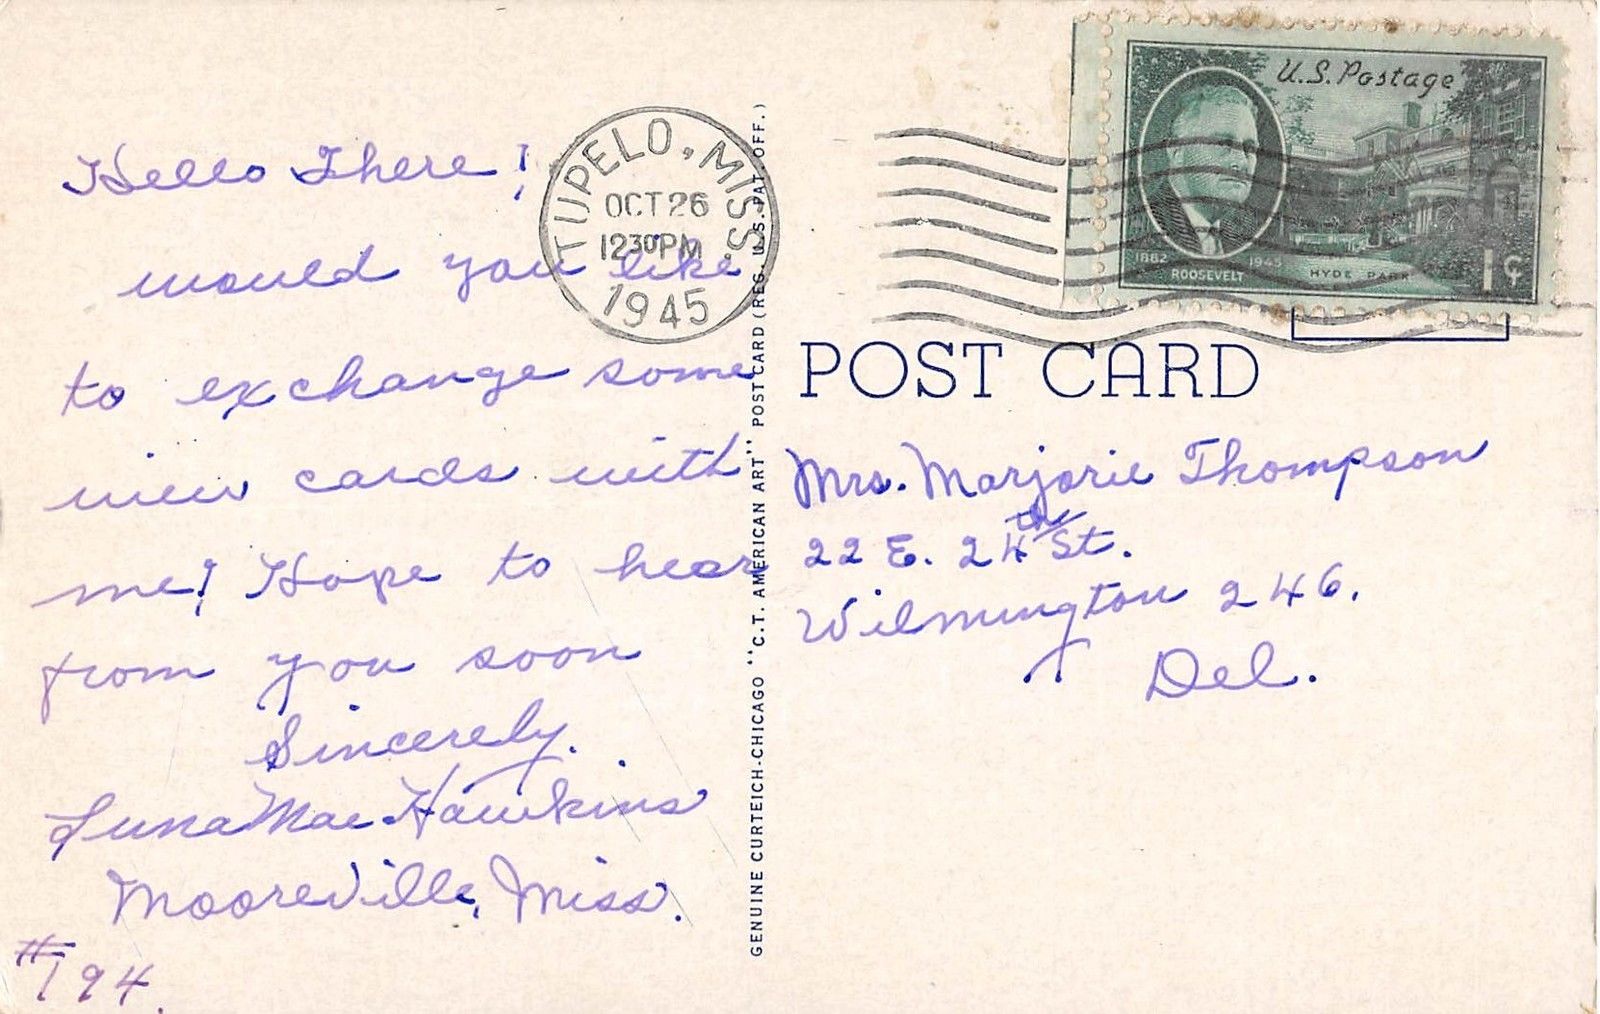 Hello There!
would you like
to exchange some
view cards with
me! Hope to hear
from you soon
Sincerely.
Mae Hawkins
Mooreville, Miss.
#194.
TUPELO, MISS.
OCT 26
1230PM
1945
GENUINE CURTEICH-CHICAGO "C.T. AMERICAN ART" POST CARD (REG. U.S. PAT. OFF.)
U.S. Postage
1882 1945
ROOSEVELT
HYDE PARK
1¢
POST CARD
Mrs. Marjorie Thompson
22 E. 24th St.
Wilmington 246.
Del.